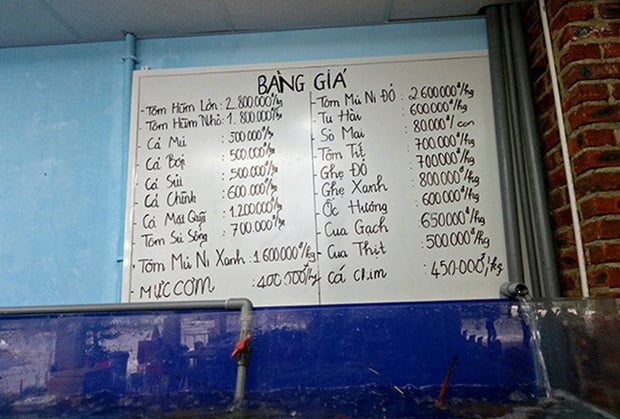 BẢNG GIÁ
- Tôm Hùm Lớn : 2.800.000đ/kg
Tôm Hùm Nhỏ : 1.800.000đ/kg
- Cá Mú : 500.000đ/kg
Cá Bớp : 500.000đ/kg
- Cá Sủi : 500.000đ/kg
- Cá Chình : 600.000đ/kg
- Cá Mặt Quỷ : 1.200.000đ/kg
Tôm Sú Sống : 700.000đ/kg
- Tôm Mũ Ni Xanh : 1.600.000đ/kg
- MỰC CƠM : 400.000đ/kg
- Tôm Mũ Ni Đỏ : 2.600.000đ/kg
- Tu Hài : 600.000đ/kg
- Sò Mai : 80.000đ/con
- Tôm Tít : 700.000đ/kg
- Ghẹ Đỏ : 700.000đ/kg
- Ghẹ Xanh : 800.000đ/kg
- Ốc Hương : 600.000đ/kg
- Cua Gạch : 650.000đ/kg
- Cua Thịt : 500.000đ/kg
- Cá chim : 450.000đ/kg